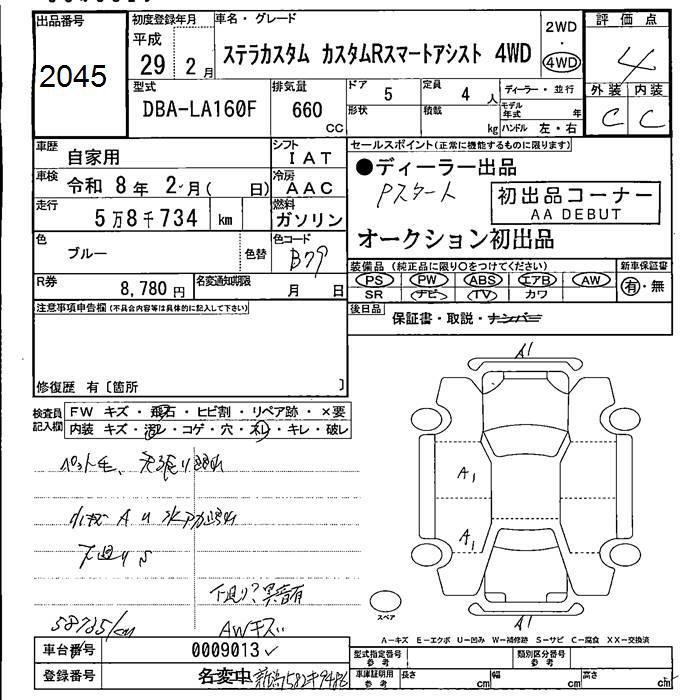 出品番号
2045
初度登録年月
平成
29 2月
車名・グレード
ステラカスタム カスタムRスマートアシスト 4WD
2WD
・
4WD
評価点
4
外装 内装
C C
型式
DBA-LA160F
排気量
660
CC
ドア
5
定員
4 人
形状
積載
kg
ディーラー・並行
モデル年式 年
ハンドル 左・右
車歴
自家用
シフト
IAT
車検
令和 8年 2月( 日)
冷房
AAC
走行
5万8千734 km
燃料
ガソリン
色
ブルー
色替
色コード
B79
R券
8,780円
名変通知期限
月 日
セールスポイント(正常に機能するものに限ります)
●ディーラー出品
Pスタート
初出品コーナー
AA DEBUT
オークション初出品
装備品(純正品に限り○をつけてください)
新車保証書
PS PW ABS エアB AW
有・無
SR ナビ TV カワ
後日品
保証書・取説・ナンバー
注意事項申告欄(不具合内容等は具体的に記入して下さい)
修復歴 有〔箇所 〕
検査員記入欄
FW キズ・飛石・ヒビ割・リペア跡・×要
内装 キズ・汚レ・コゲ・穴・スレ・キレ・破レ
ペット毛、
下廻りS
下廻り?異音有
58735km
AWキズ
A1
A1
A1
A1
スペア
A-キズ E-エクボ U-凹み W-補修跡 S-サビ C-腐食 XX-交換済
車台番号
0009013
登録番号
名変中
型式指定番号
参考
類別区分番号
参考
車庫証明用
参考
長さ cm
幅 cm
高さ cm